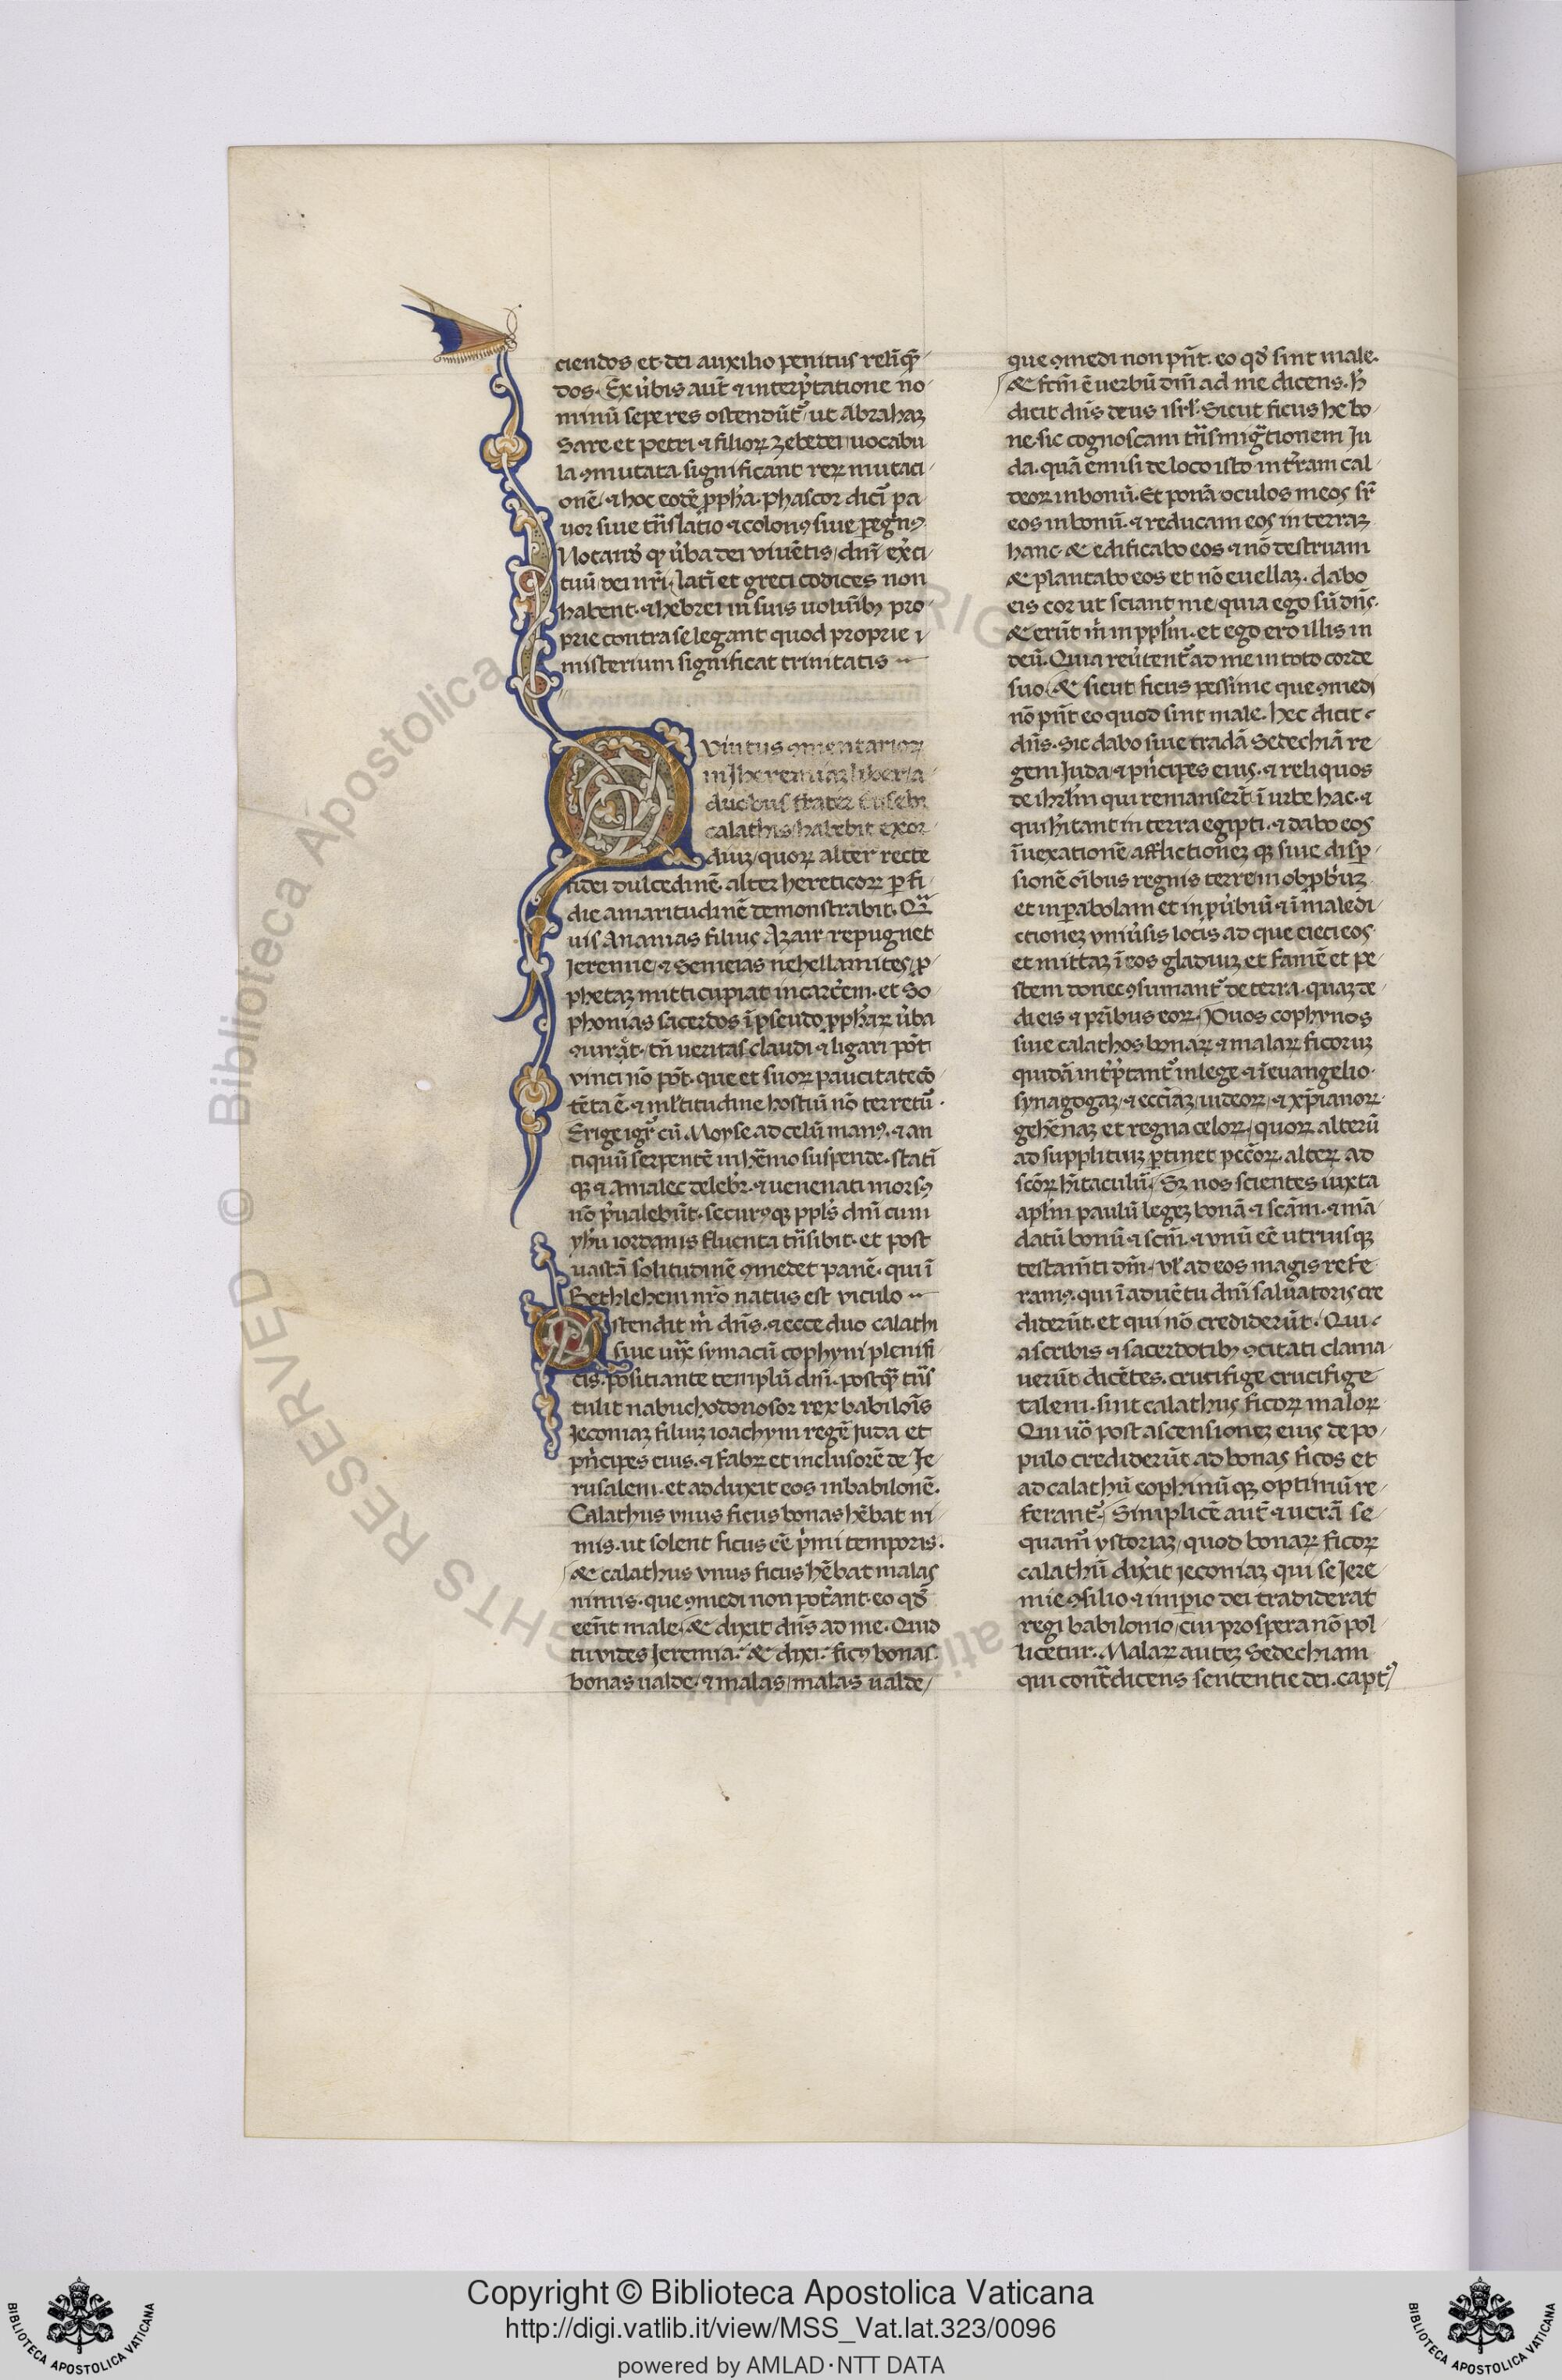 ciendos et dei auxilio penitus relīq̄
dos. Ex ūbis aūt ⁊ interp̄tatione no
minū sepe res ostendūt᷑ ut Abrahaꝫ
Sare et petri ⁊ filioꝝ zebedei uocabu
la ꝯmutata significant reꝝ mutaci
onē ⁊ hoc eodē ꝓph̄a. phascor dicī pa
uor siue tn̄slatio ⁊ colonꝰ siue ꝑegn̄ꝰ
Notanđ ꝙ ūba dei viuētis dn̄i ex̄ci
tuū dei nr̄i latī et greci codices non
habent. ⁊ hebrei in suis uolūībꝫ pro
prie contra se legant quod proprie ı
misterium significat trinitatis
Qvintus ꝯmentarioꝝ
in Jheremiaꝫ liber a
duobus frater Eusebi
calathis habebit exor
diuꝫ quoꝝ alter recte
fidei dulcedinē. alter hereticoꝝ ꝑfi
die amaritudinē demonstrabit. Qm̄
uis Ananias filius Azair repugnet
Jeremie ⁊ Semeias nehellamites ꝓ
phetaꝫ mitti cupiat in carc̄em. et So
phonias sacerdos ī pseudo ꝓph̄aꝝ ūba
tn̄ ueritas claudi ⁊ ligari pōt
vinci nō pōt. que et suoꝝ paucitate cō
tēta ē. ⁊ ml̄titudine hostiū nō terretū.
Erige igr̄ cū Moyse ad celū manꝰ. ⁊ an
tiquū serpentē in hēmo suspende. statī
qꝫ ⁊ Amalec delebr̄. ⁊ uenenati morsꝰ
nō p̄ualebūt. securꝰqꝫ ppl̄s dn̄i cum
yh̄u iordanis fluenta tn̄sibit. et post
uastā solitudinē ꝯmedet panē. qui ī
Bethlehem nr̄o natus est viculo
Ostendit m̄ dn̄s. ⁊ ecce duo calathi
siue iux̄ symacū cophyni pleni fi
cis. positi ante templū dn̄i. postꝗ̄ tn̄s
tulit nabuchodonosor rex babilōīs
Jeconiaꝫ filiuꝫ ioachym regē Juda et
pn̄cipes eius. ⁊ fabꝝ et inclusorē de Je
rusalem. et adduxit eos in babilonē.
Calathus vnus ficus bonas hēbat ni
mis. ut solent ficus eē p̄mi temporis.
& calathus vnus ficus hēbat malas
nimis. que ꝯmedi non pot̄ant. eo qđ
een̄t male. & dixit dn̄s ad me. Quid
tu vides Jeremia. & dixi. ficꝰ bonas
bonas ualde. ⁊ malas malas ualde
que ꝯmedi non pn̄t. eo qđ sint male.
& fcm̄ ē uerbū dn̄i ad me dicens. H̄
dicit dn̄s deus isrl̄. Sicut ficus he bo
ne. sic cognoscam tn̄smigr̄tionem Ju
da. quā emisi de loco isto in t̄ram cal
deoꝝ in bonū. Et ponā oculos meos sr̄
eos in bonū. ⁊ reducam eos in terraꝫ
hanc. & edificabo eos ⁊ nō destruam
& plantabo eos et nō euellaꝫ. dabo
eis cor ut sciant me quia ego sū dn̄s.
& erūt m̄ in ppl̄m. et ego ero illis in
deū. Quia reūtent᷑ ad me in toto corde
suo. & sicut ficus pessime que ꝯmedi
nō pn̄t eo quod sint male. hec dicit
dn̄s. Sic dabo siue tradā Sedechiā re
gem Juda ⁊ pn̄cipes eius. ⁊ reliquos
de ihrl̄m qui remanser̄t ī urbe hac. ⁊
qui hītant in terra egipti. ⁊ dabo eos
ī uexationē afflictioneꝫ qꝫ siue disꝑ
sionē oībus regnis terre in obꝓbr̄iuꝫ
et in ꝑabolam et in ꝓūbiū ⁊ ī maledi
ctioneꝫ vniūsis locis ad que eieci eos
et mittaꝫ ī eos gladiuꝫ et famē et pe
stem donec ꝯsumant᷑ de terra. quaꝫ de
di eis ⁊ pr̄ibus eoꝝ. Duos cophynos
siue calathos bonaꝝ ⁊ malaꝝ ficoruꝫ
quidā int̄p̄tant᷑ in lege ⁊ ī euangelio.
synagogaꝫ ⁊ ecc̄iaꝫ iudeoꝝ ⁊ xp̄ianoꝝ
gehēnaꝫ et regna celoꝝ quoꝝ alterū
ad supplitiuꝫ ꝑtinet pcc̄oꝝ. alteꝝ ad
sc̄oꝝ hītaculū. Sꝫ nos scientes iuxta
apl̄m paulū legeꝫ bonā ⁊ scām. ⁊ mā
datū bonū ⁊ scm̄. ⁊ vnū eē utriusqꝫ
testam̄ti dm̄. vl̄ ad eos magis refe
ramꝰ. qui ī aduētu dn̄i saluatoris cre
diderūt. et qui nō crediderūt. Qui
a scribis ⁊ sacerdotibꝫ ꝯcitati clama
uerūt dicētes. crucifige crucifige
talem. sint calathus ficoꝝ maloꝝ
Qui uō post ascensioneꝫ eius de po
pulo crediderūt ad bonas ficos et
ad calathū cophinūqꝫ optimū re
ferant᷑. Simplicē aut̄ ⁊ uerā se
quam᷑ ystoriaꝫ quod bonaꝝ ficoꝝ
calathū dix̄it jeconiaꝫ qui se Jere
mie ꝯsilio ⁊ imꝑio dei tradiderat
regi babilonio cui prospera nō pol
licetur. Malaꝝ auteꝫ Sedechiam
qui contr̄dicens sententie dei. captꝰ
Copyright © Biblioteca Apostolica Vaticana
http://digi.vatlib.it/view/MSS_Vat.lat.323/0096
powered by AMLAD·NTT DATA
BIBLIOTECA APOSTOLICA VATICANA
BIBLIOTECA APOSTOLICA VATICANA